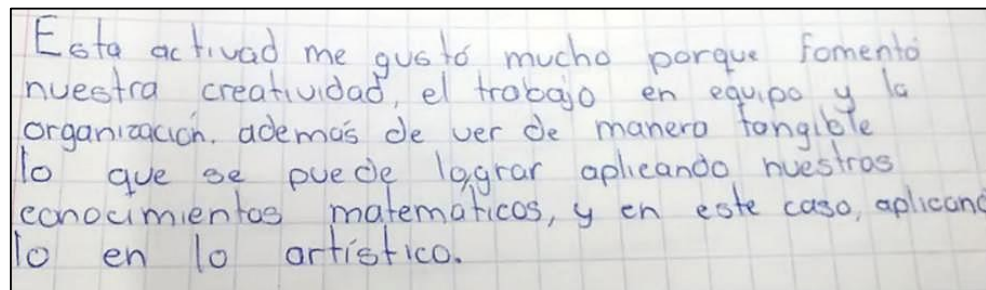 Esta activad me gustó mucho porque fomentó
nuestra creatividad, el trabajo en equipo y la
organización. además de ver de manera tangible
lo que se puede lograr aplicando nuestros
conocimientos matemáticos, y en este caso, aplicand
lo en lo artístico.